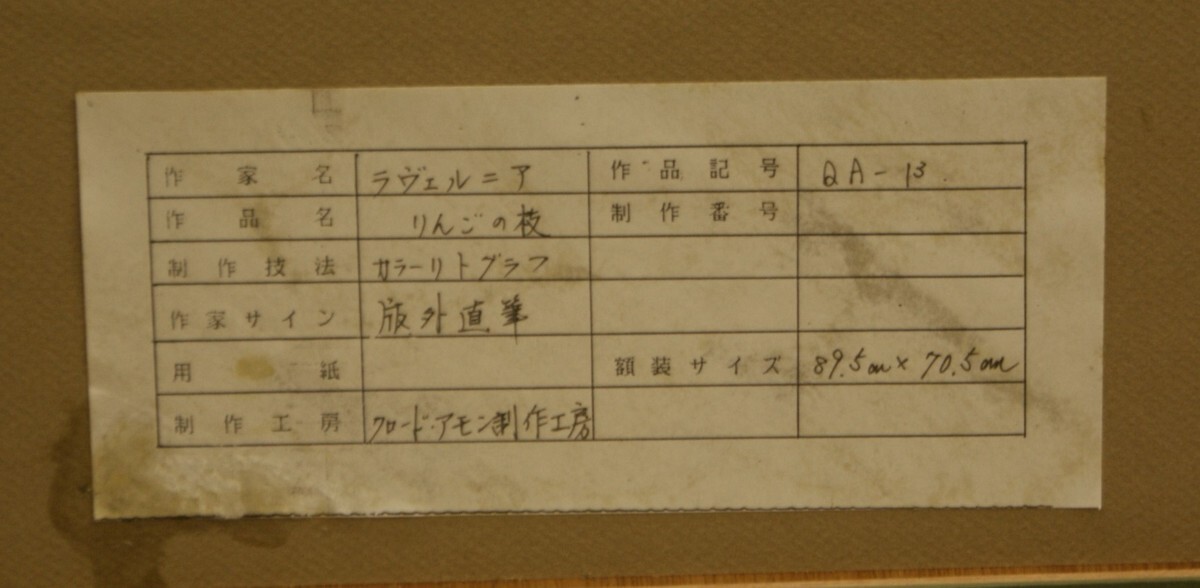 作家名 ラヴェルニア 作品記号 QA-13
作品名 りんごの枝 制作番号
制作技法 カラーリトグラフ
作家サイン 版外直筆
用紙 額装サイズ 89.5cm×70.5cm
制作工房 クロード・アモン制作工房